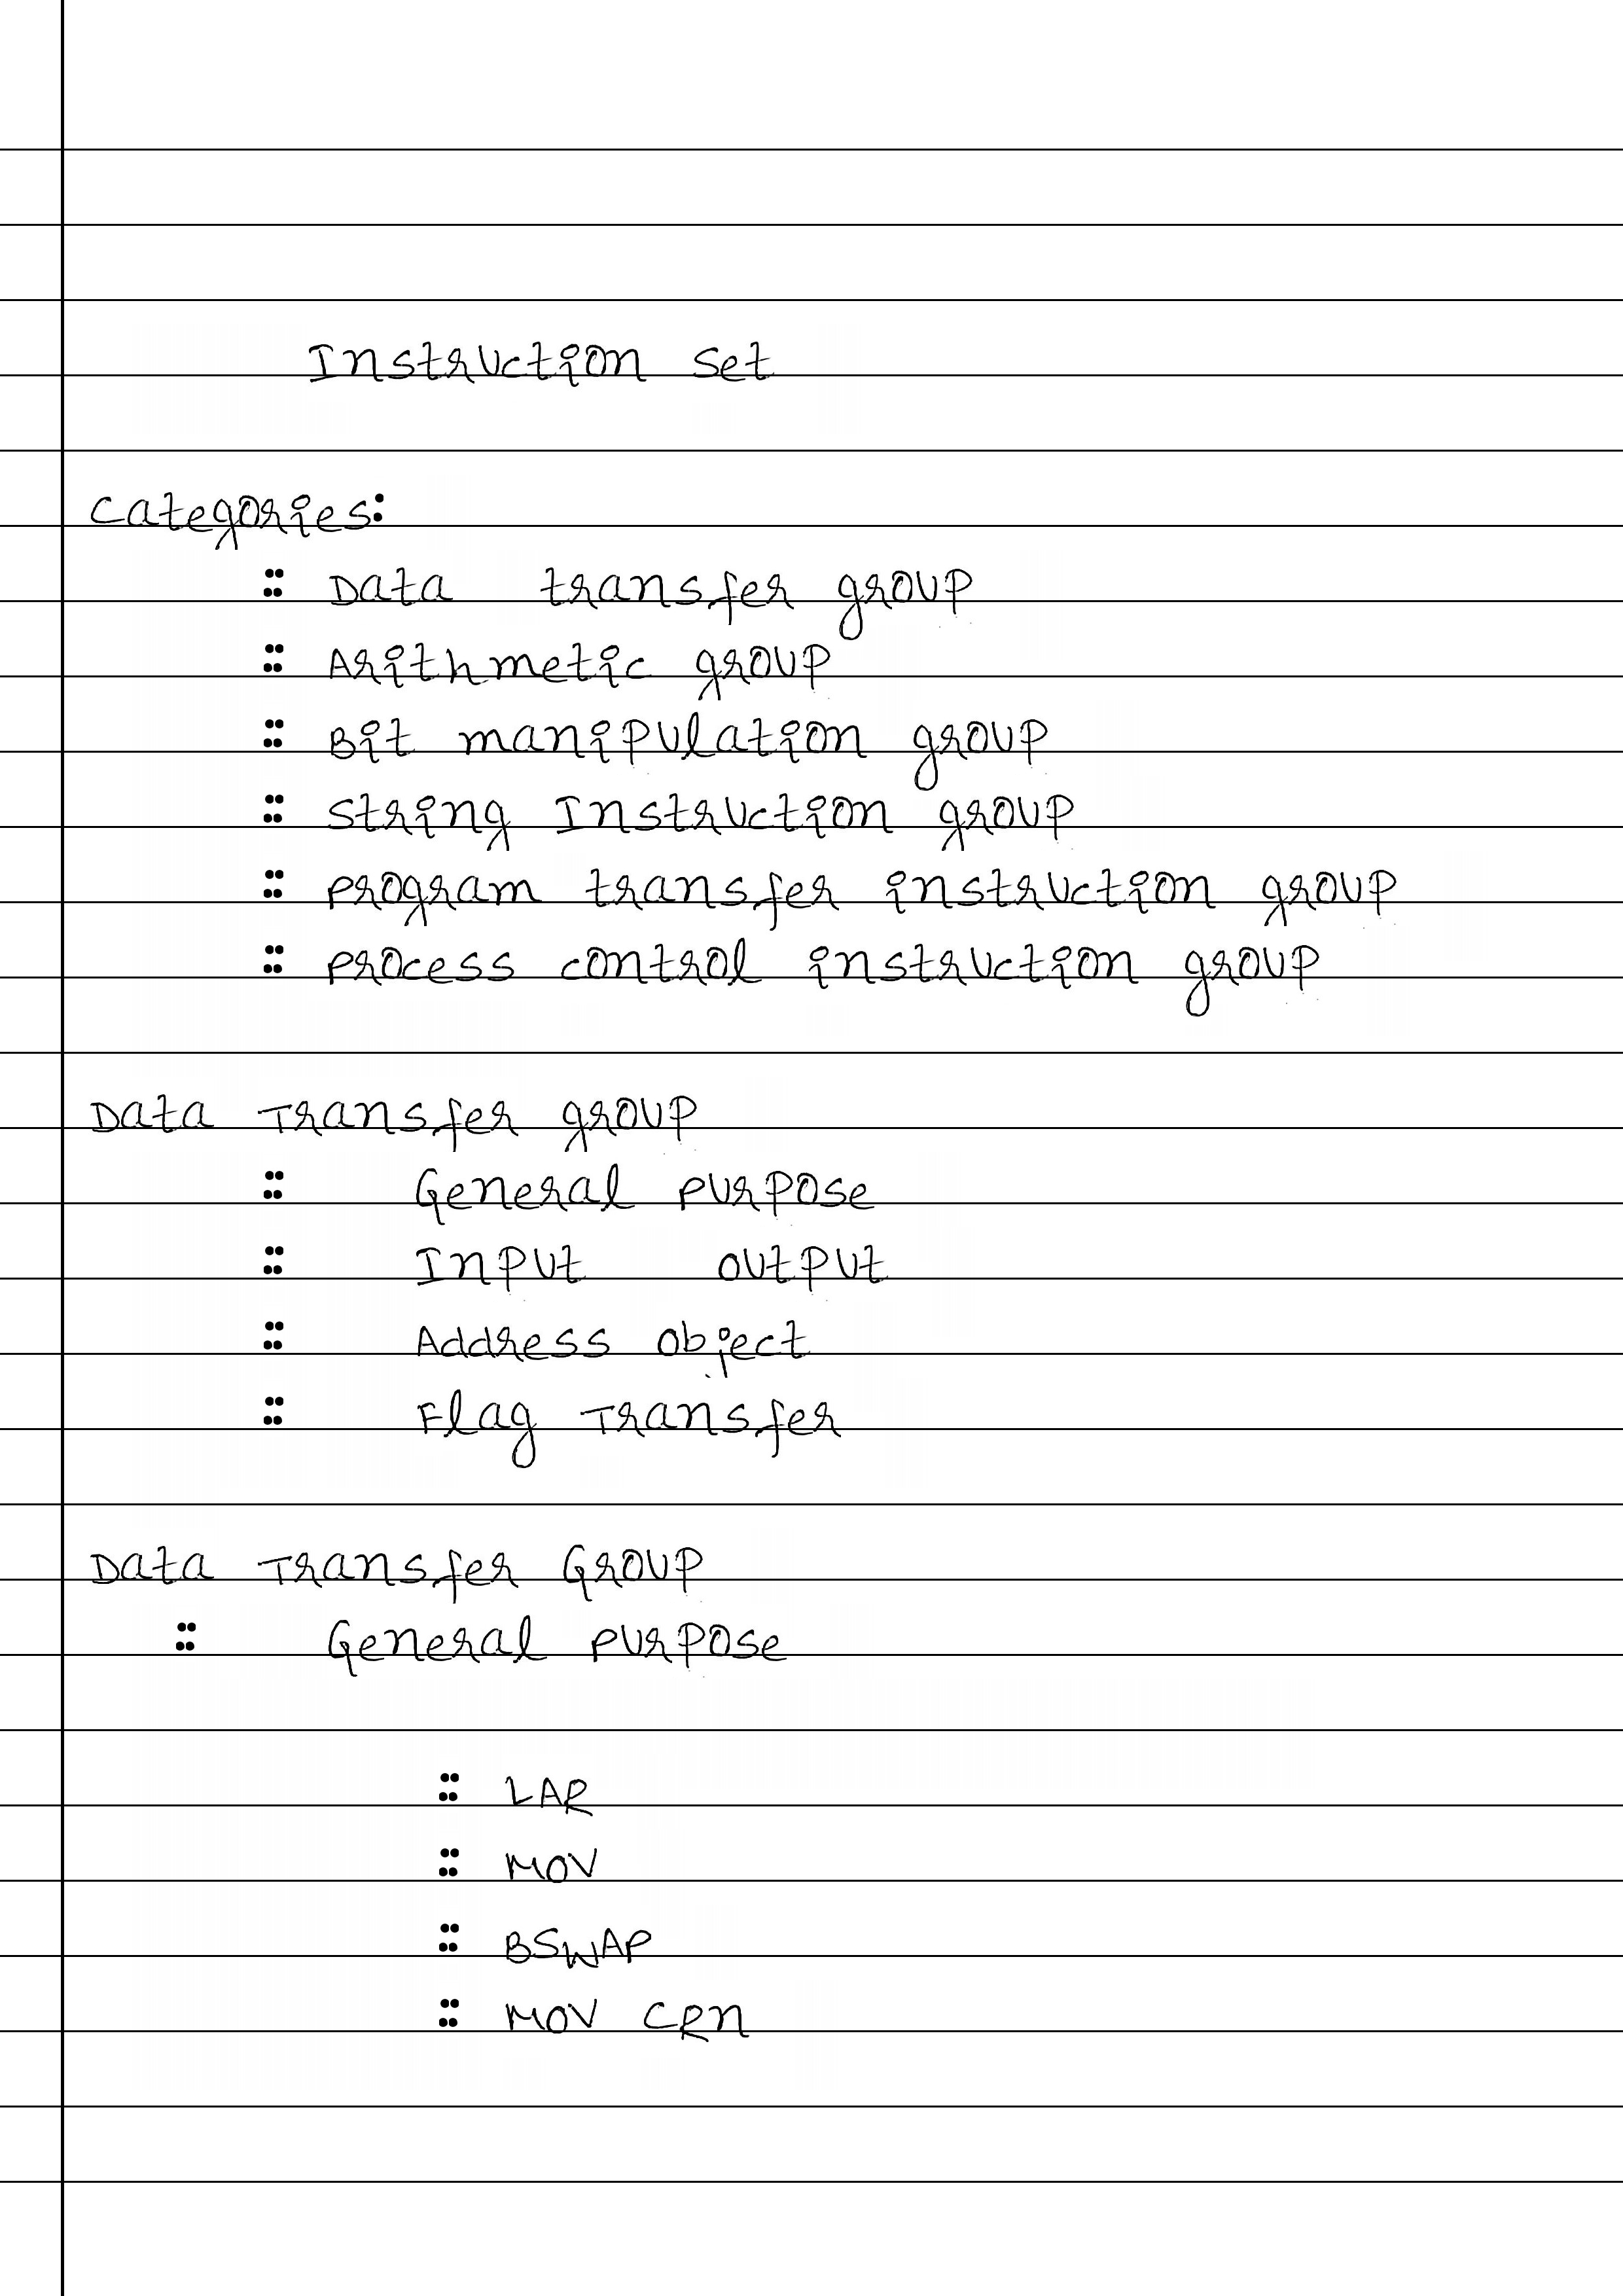 Instruction set
Categories:
:: Data transfer group
:: Arithmetic group
:: Bit manipulation group
:: String Instruction group
:: program transfer instruction group
:: process control instruction group
Data Transfer group
:: General purpose
:: Input output
:: Address object
:: Flag Transfer
Data Transfer Group
:: General purpose
:: LAR
:: MOV
:: BSWAP
:: MOV CRn